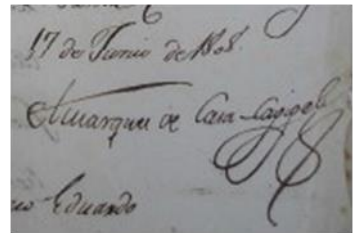 17 de Junio de 1808.
El Marques de Casa-Cagigal
Eduardo